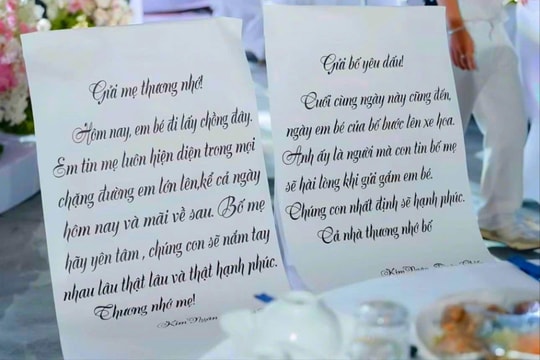 Gửi mẹ thương nhớ!
Hôm nay, em bé đi lấy chồng đây.
Em tin mẹ luôn hiện diện trong mọi
chặng đường em lớn lên, kể cả ngày
hôm nay và mãi về sau. Bố mẹ
hãy yên tâm, chúng con sẽ nắm tay
nhau lâu thật lâu và thật hạnh phúc.
Thương nhớ mẹ!
Gửi bố yêu dấu!
Cuối cùng ngày này cũng đến,
ngày em bé của bố bước lên xe hoa.
Anh ấy là người mà con tin bố mẹ
sẽ hài lòng khi gửi gắm em bé.
Chúng con nhất định sẽ hạnh phúc.
Cả nhà thương nhớ bố